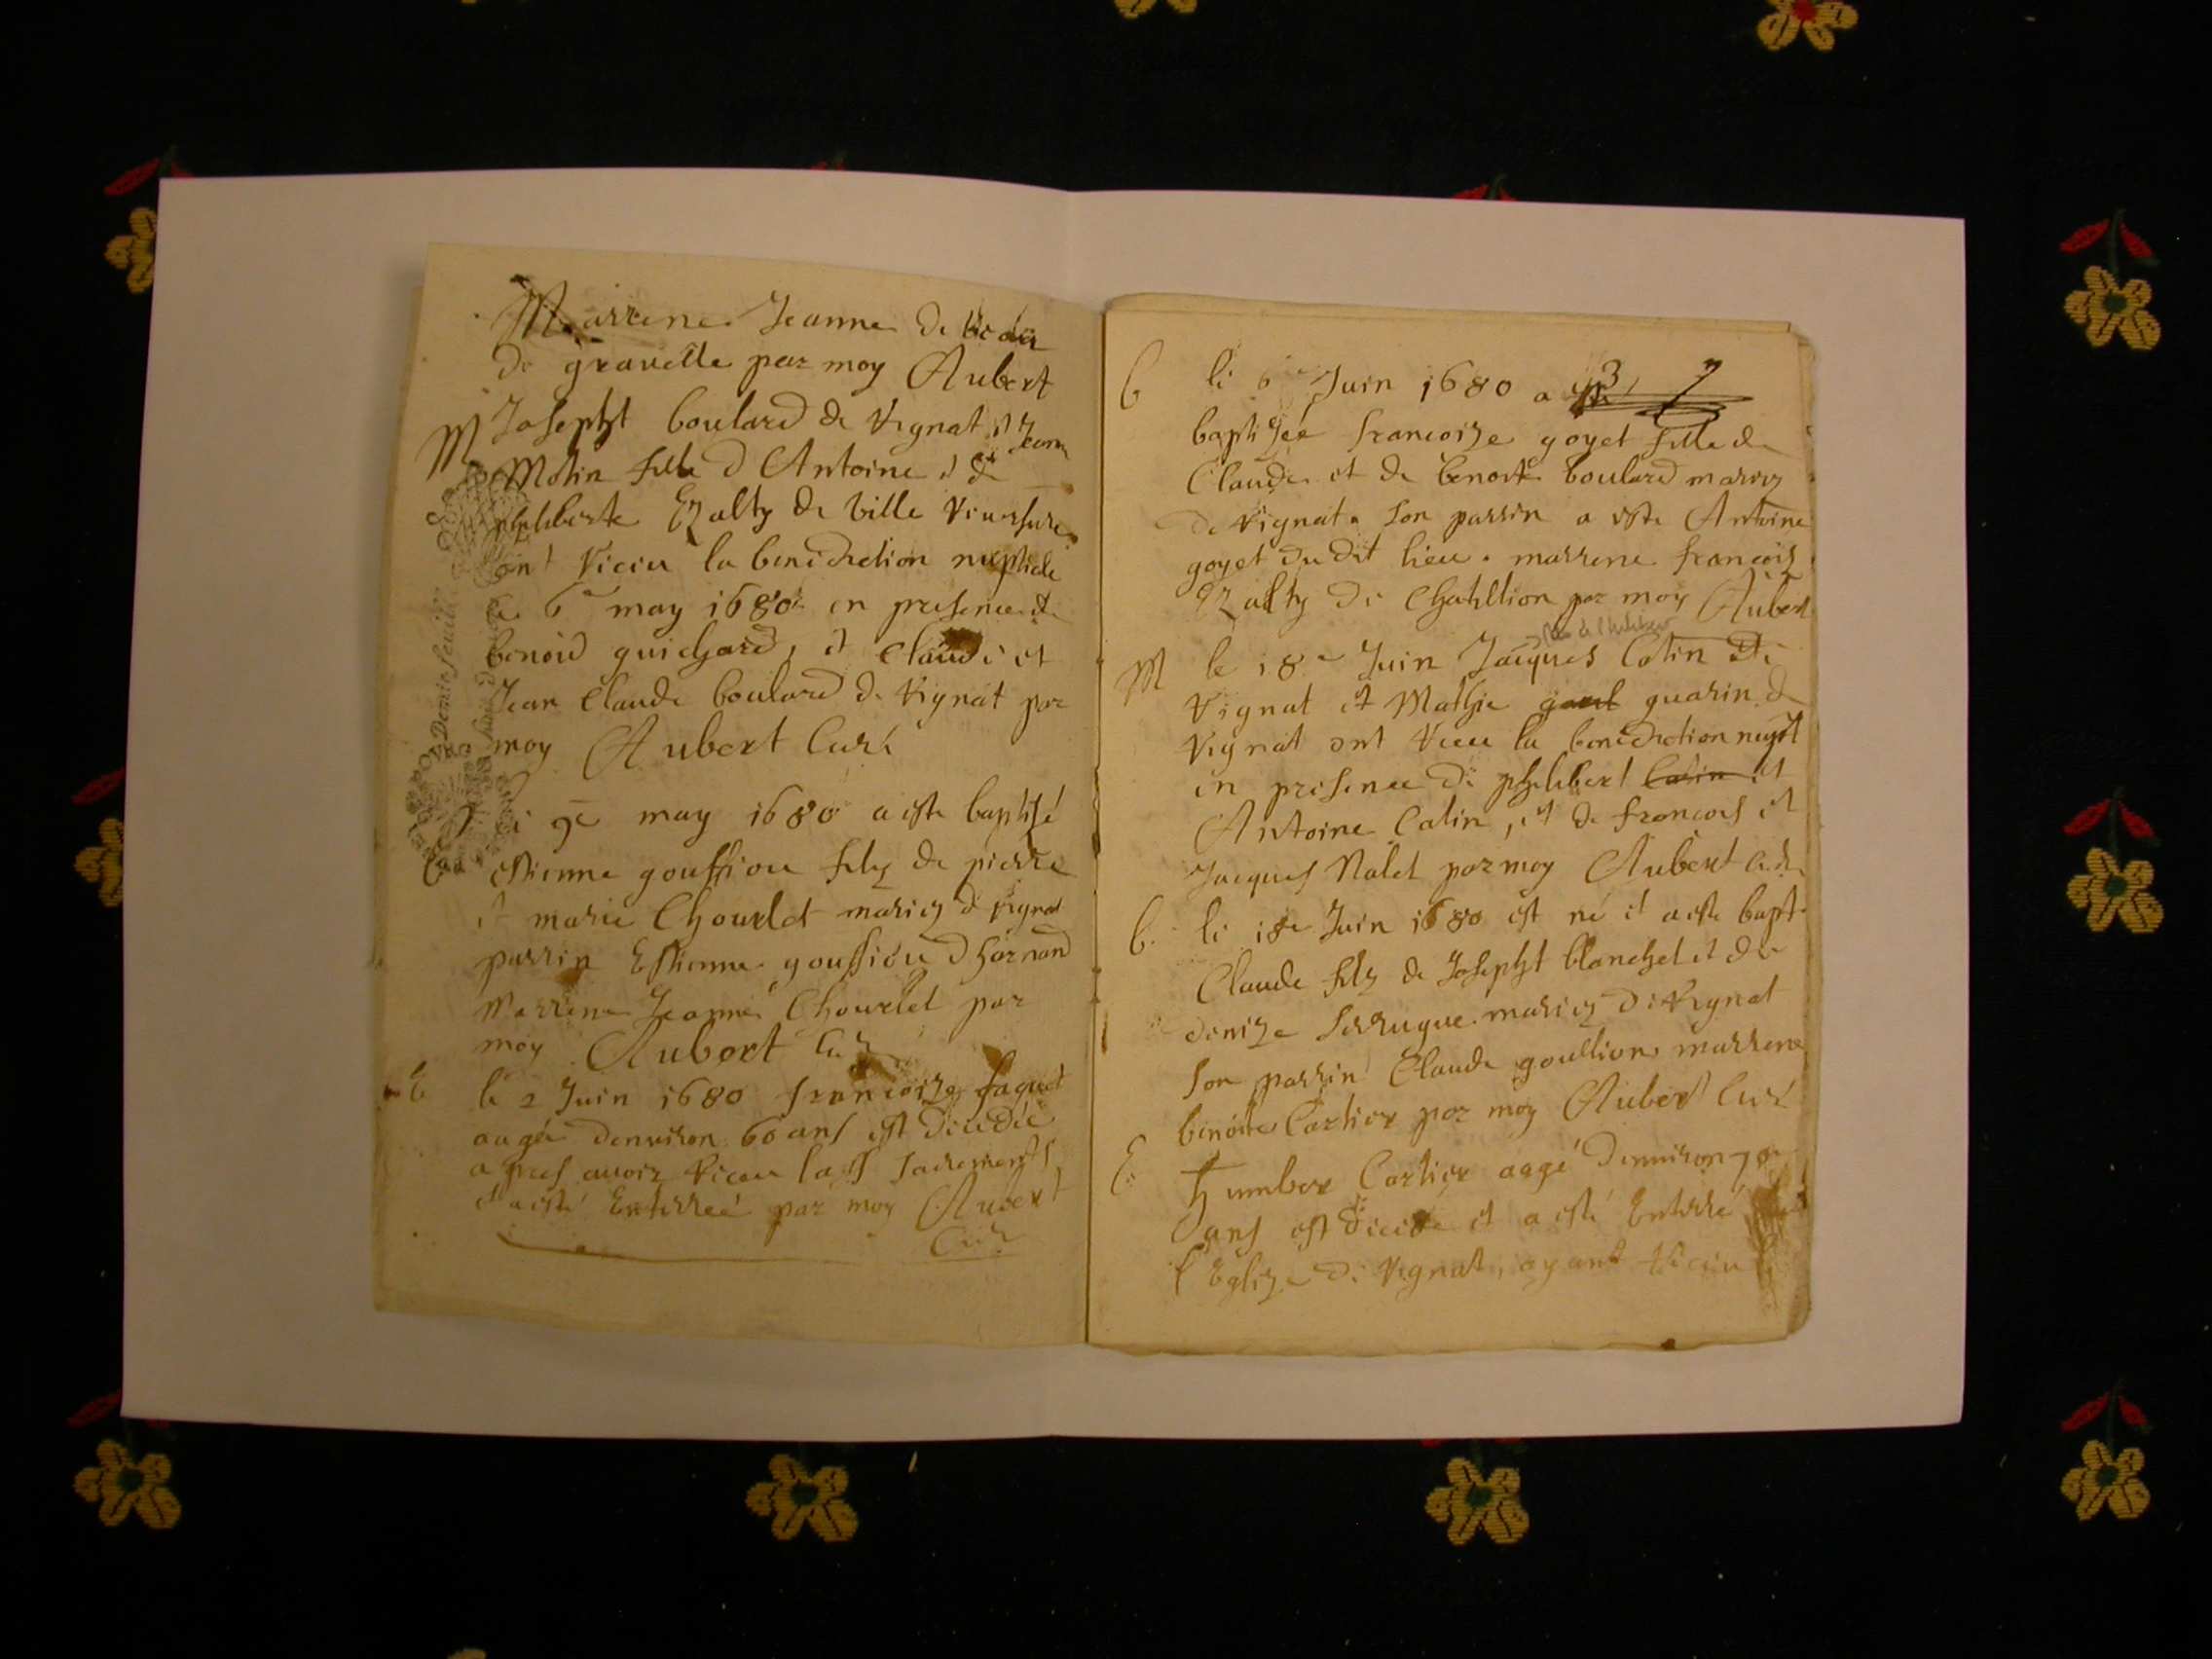 Marrene Jeanne de
de gravelle par moy Aubert
M Josepht boulard de Vignat et Jeanne
Molin fille d Antoine et de
philiberte de Ville
ont receu la benediction nuptiale
le 6e may 1680 en presence de
benoid guichard, et Claude et
Jean Claude boulard de Vignat par
moy Aubert Curé
9e may 1680 a este baptisé
estienne goussion filz de pierre
et marie Chourlet mariez de Vignat
parrin Estienne goussion
Marrene Jeanne Chourlet par
moy Aubert Curé
E le 2 Juin 1680 francoize
aagée denviron 60 ans est decedée
apres avoir receu les SS Sacrements
et a esté Enterreé par moy Aubert
Curé
3
b le 6e Juin 1680 a
baptizée francoize goyet fille de
Claude et de benoite boulard mariez
de Vignat. son parrin a este Antoine
goyet du dit lieu. marrene francoise
de Chatillion par moy Aubert
M le 18e Juin Jacques Catin de
Vignat et Mathie guarin de
Vignat ont receu la benediction nupt
en presence de philibert Catin et
Antoine Catin, et de francois et
Jacques Nalet par moy Aubert Curé
b. le 18e Juin 1680 est né et a este bapt.
Claude filz de Josepht blanchet et de
denize mariez de Vignat
son parrin Claude goullion marrene
benoite Cartier par moy Aubert Curé
E. humber Cartier aagé denviron 70
ans est decedé et a esté Enterré
l Eglize de Vignat, ayant receu